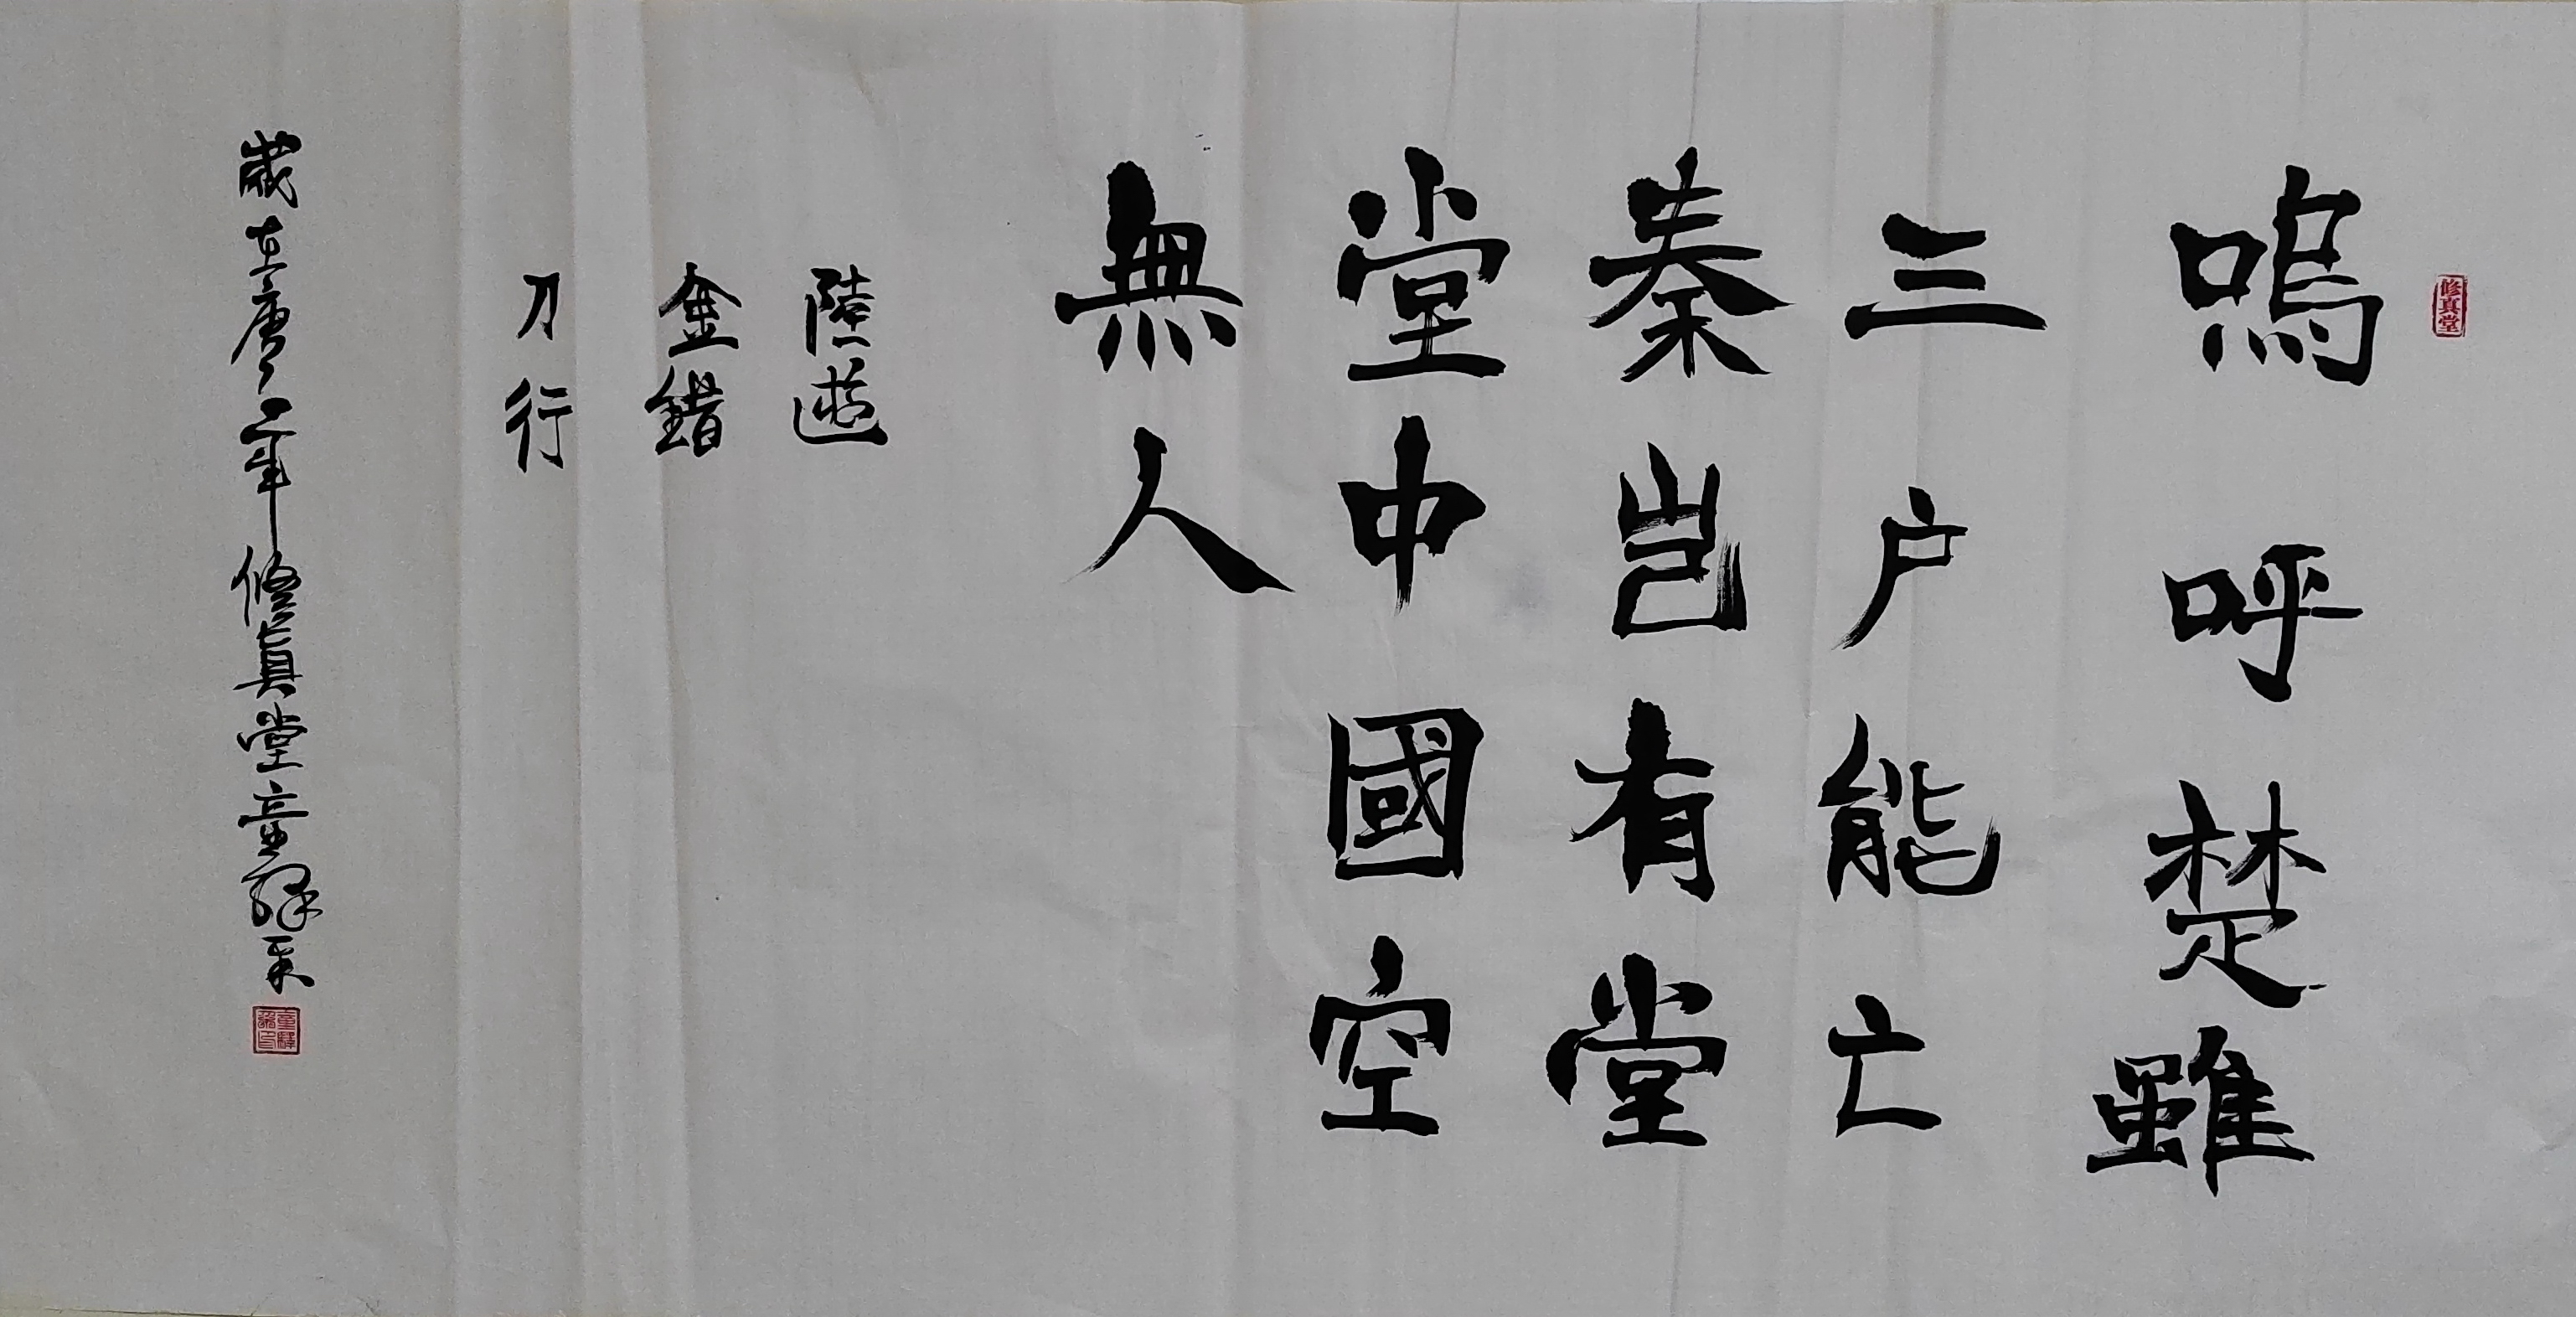 修真堂
嗚呼楚雖
三户能亡
秦岂有堂
堂中國空
無人
陸遊
金錯
刀行
歲在庚子年修真堂童